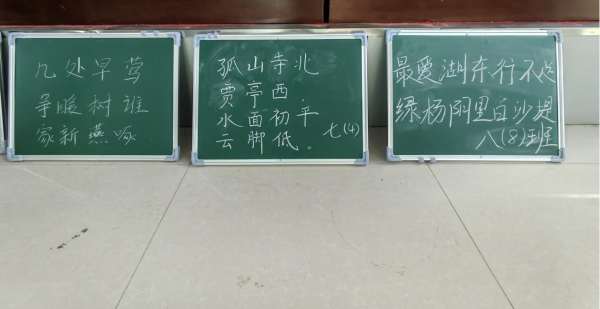 几处早莺
争暖树谁
家新燕啄
孤山寺北
贾亭西.
水面初平
云脚低。
七(4)
最爱湖东行不足
绿杨阴里白沙堤
八(8)班